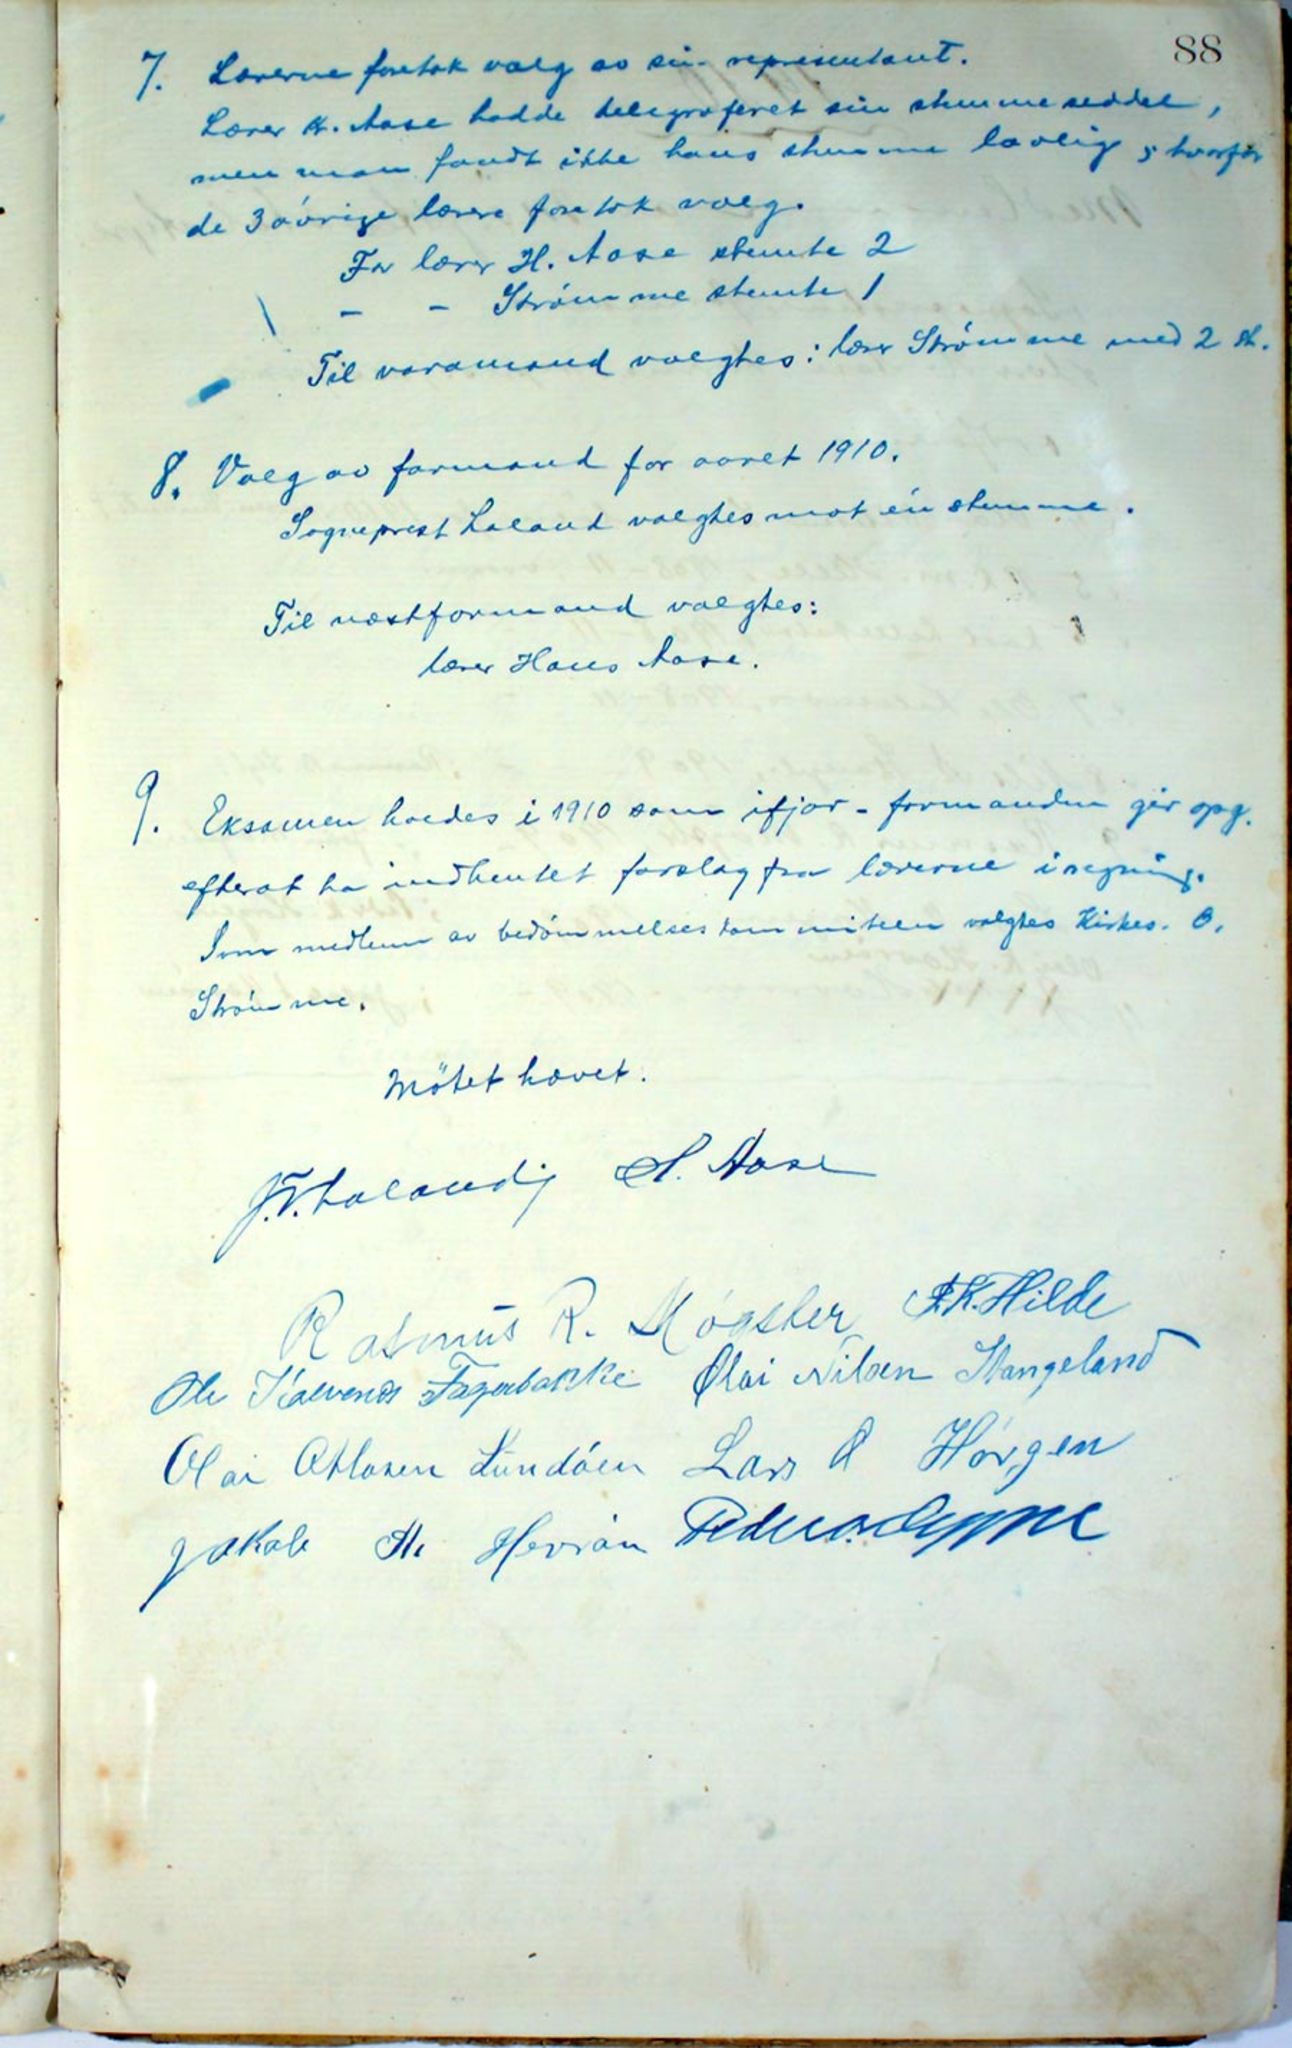 88
7. Lærerne foretok valg av sin representant.
Lærer K. Aase hadde telegraferet sin stemmeseddel,
men man fandt ikke hans stemme lovlig, hvorfor
de 3 övrige lærere foretok valg.
For lærer H. Aase stemte 2
- - Strömme stemte 1
Til varamand valgtes: lærer Strömme med 2 st.
8. Valg av formand for aaret 1910.
Sogneprest Laland valgtes mot én stemme.
Til næstformand valgtes:
lærer Hans Aase.
9. Eksamen holdes i 1910 som ifjor - formanden gir opg.
efterat ha indhentet forslag fra lærerne i regning.
Som medlem av bedömmelseskommiteen valgtes Kirkes. O.
Strömme.
Mötet hævet.
J. V. Laland H. Aase
Rasmus R. Møgster K. Hilde
Ole Fagerbakke Olai Nilsen Stangeland
Olai Lundöen Lars O Horgen
Jakob